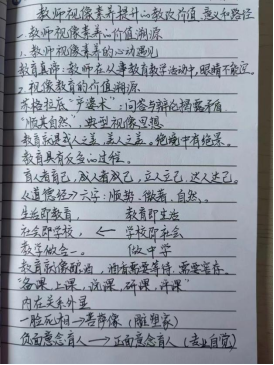 教师视像素养提升的教改价值、意义和路径
一、教师视像素养的价值溯源
1、教师视像素养的心动遇见
教育真谛：教师在从事教育教学活动中，眼睛不能
2、视像教育的价值溯源
苏格拉底"产婆术"：问答与辩论揭露矛盾
"顺其自然"，典型视像思想
教育就是成人之美，美人之美。绝境中有绝景。
教育具有反复的过程。
育人者育己，成人者成己，立人立己，达人达己。
《道德经》六字：顺势、微著、自然。
生活即教育， 教育即生活
社会即学校， ← 学校即社会
教学做合一。 做中学
教育就像酿酒，酒香需要等待，需要客存。
"备课、上课，说课，研课，评课"
内在关系外显
一脸死相→菩萨像（雕塑家）
负面意念育人→正面意念育人（专业自觉）